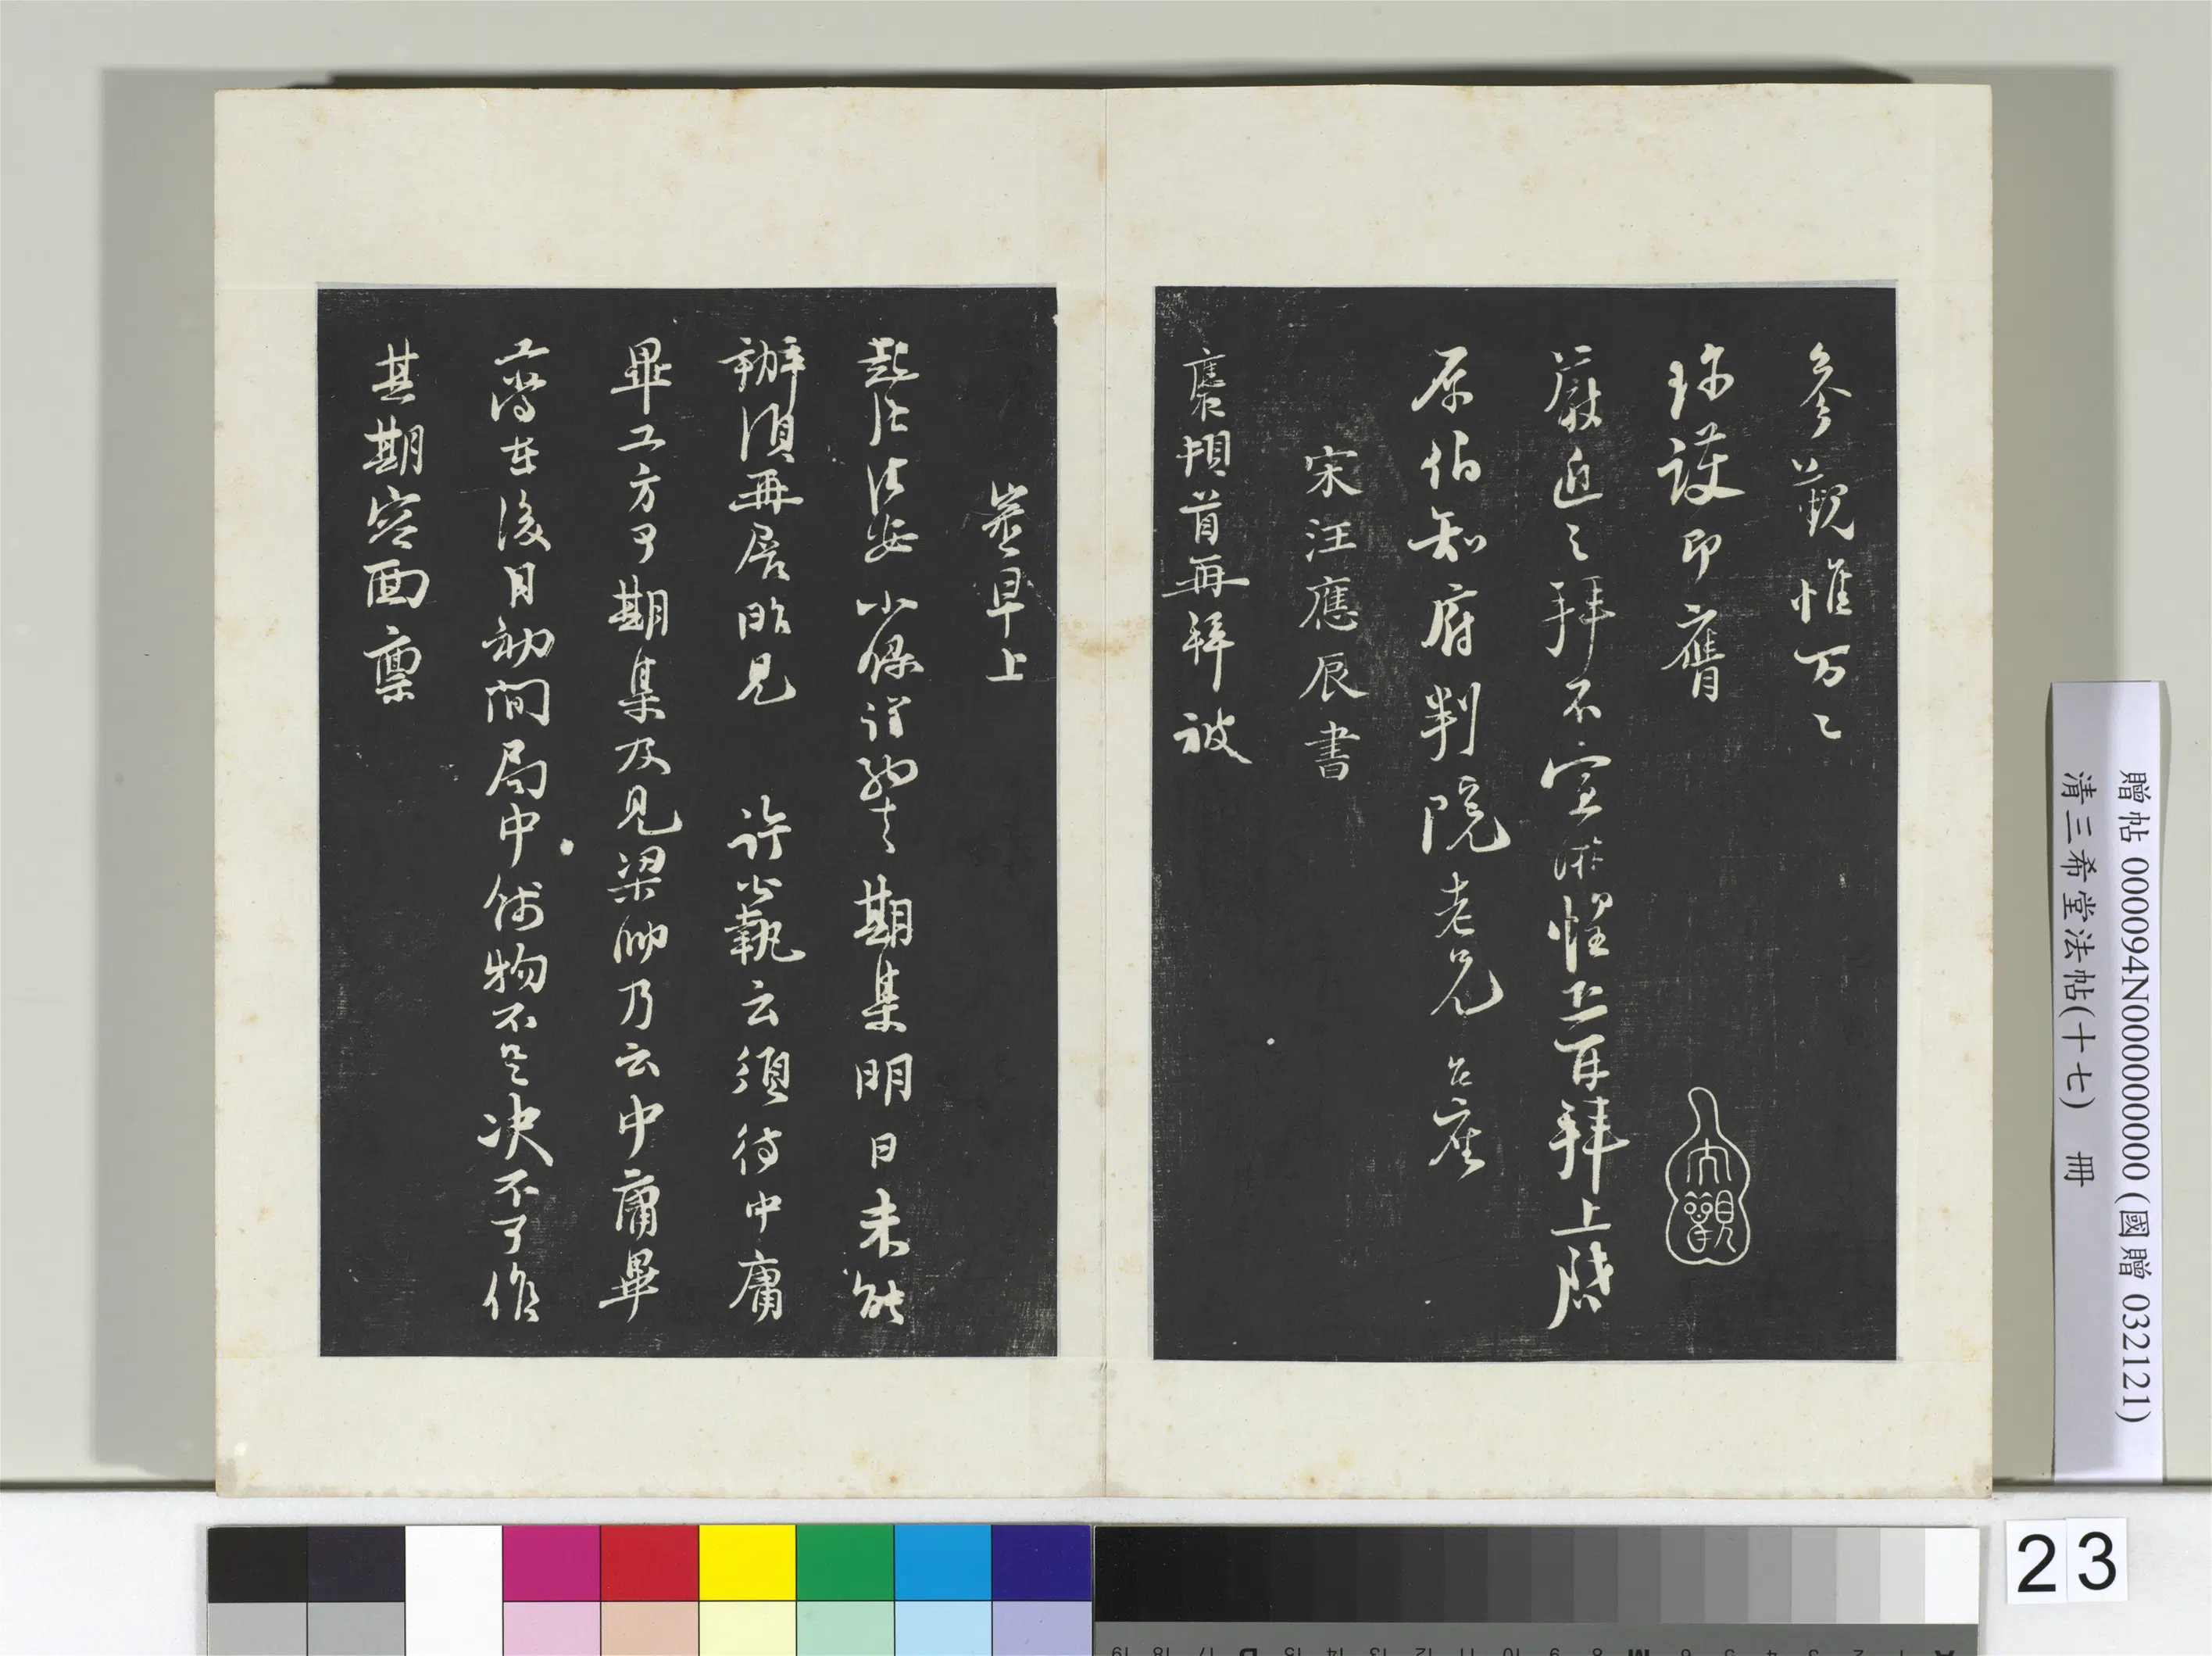 參覲惟万々
珎護即膺
嚴近之拜不宣
應辰惶恐百拜上啟
原伯知府判院老兄台座
宋汪應辰書
大觀
褒頓首再拜被
旦早上
起居
少保
期集明日未能
辦須再展昨見
許公執云須待中庸
畢工方可期集及見梁帥乃云中庸畢
工當在後月初間局中什物不足決不可作
其期容面稟
贈帖 000094N000000000 (國贈 032121)
清三希堂法帖(十七) 冊
23